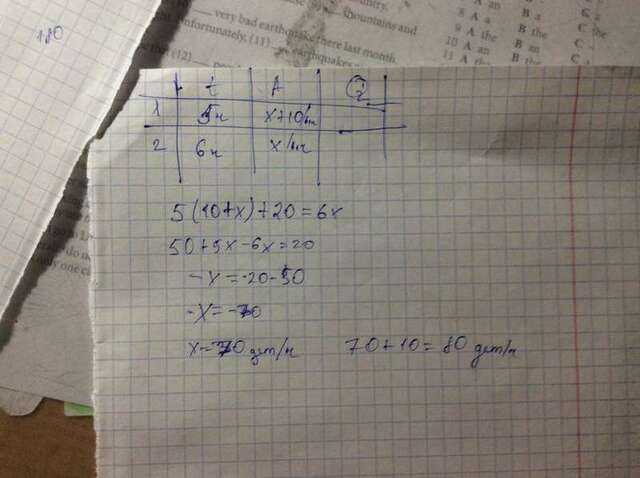 180
very bad earthquake here last month.
mountains and
Unfortunately, (11)
earthquakes
(12)
9 A the
10 A an
11 A the
B a
B the
B an
B the
C
C
C
t A Q
1 5ч x+10/ч
2 6ч x/ч
5(10+x)+20=6x
50+5x-6x=20
-x=-20-50
-x=-70
x=70 дет/ч 70+10=80 дет/ч